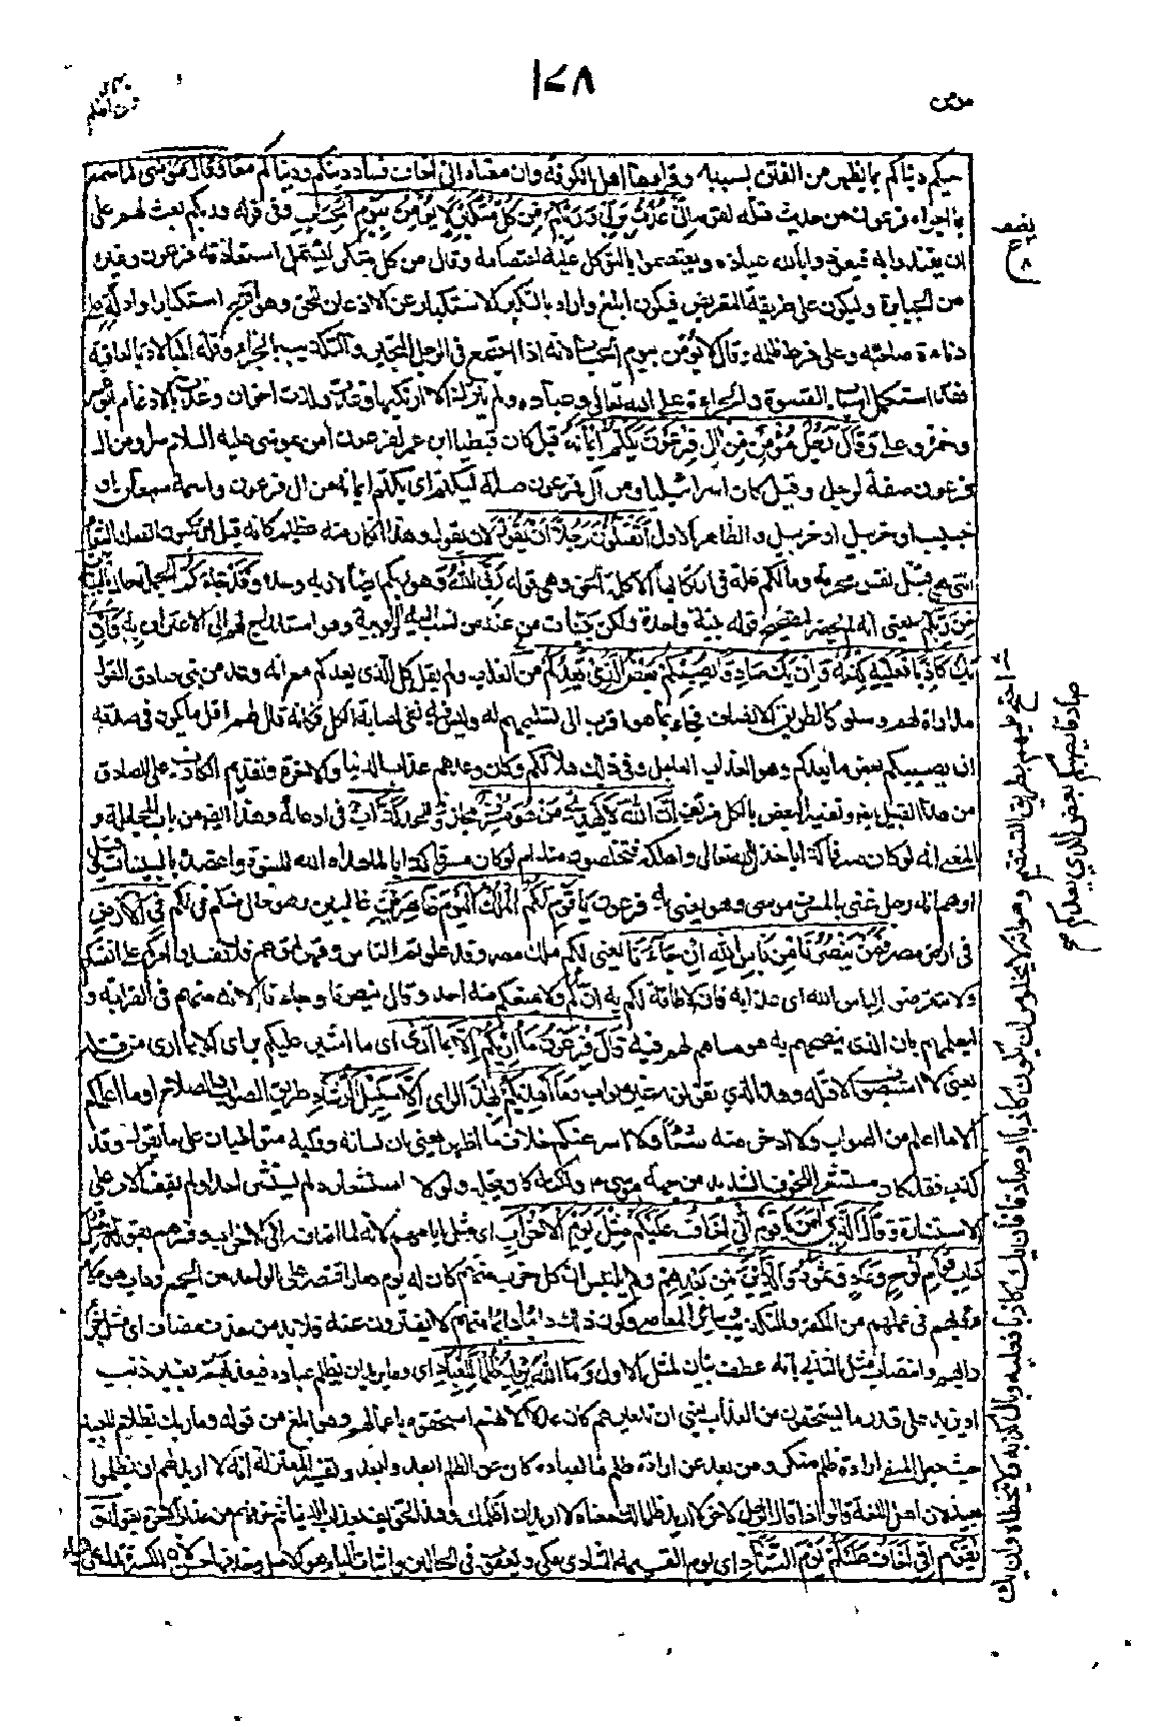 ١٤٨
مومن
فمن اظلم
نصف
دينكم دنياكم بما يظهر من الفتن بسببه وقرأ غيرها اهل الكوفة وان معناه اني اخاف فساد دينكم ودنياكم معا وقال موسى لما سمع
بما اجراه فرعون من حديث قتله لقومه اني عذت بربي وربكم من كل متكبر لا يؤمن بيوم الحساب وفي قوله وربكم بعث لهم على
ان يقتدوا به فيعوذوا بالله عياذه ويعتصموا بالتوكل عليه اعتصامه وقال من كل متكبر لتشتمل استعاذته فرعون وغيره
من الجبابرة وليكون على طريقة التعريض فيكون ابلغ واراد بالتكبر الاستكبار عن الاذعان للحق وهو اقبح استكبار وادله على
دناءة صاحبه وعلى فرط ظلمه وقال لا يؤمن بيوم الحساب لانه اذا اجتمع في الرجل التجبر والتكذيب بالجزاء وقلة المبالاة بالعاقبة
فقد استكمل اسباب القسوة والجراءة على الله تعالى وعباده ولم يترك عظيمة الا ارتكبها وعذت ولذت اخوان وعذت بالادغام ابو عمرو
وحمزة وعلي وقال رجل مؤمن من ال فرعون يكتم ايمانه قيل كان قبطيا ابن عم لفرعون امن بموسى عليه السلام سرا ومن ال
فرعون صفة لرجل وقيل كان اسرائيليا ومن آل فرعون صلة ليكتم اي يكتم ايمانه من ال فرعون واسمه سمعان او
حبيب او خربيل او حزبيل والظاهر الاول اتقتلون رجلا ان يقول لان يقول وهذا انكار منه عظيم كانه قيل اترتكبون الفعلة الشنعاء
التي هي قتل نفس محرمة وما لكم علة في ارتكابها الا كلمة الحق وهي قوله ربي الله وهو ربكم ايضا لا ربه وحده وقد جاءكم الجملة حال بالبينات
من ربكم يعني انه لم يحضر لتصحيح قوله بينة واحدة ولكن بينات من عند من نسب اليه الربوبية وهو استدراج لهم الى الاعتراف به وان
يك كاذبا فعليه كذبه وان يك صادقا يصبكم بعض الذي يعدكم من العذاب ولم يقل كل الذي يعدكم مع انه وعد من نبي صادق القول
مداراة لهم وسلوكا لطريق الانصاف فجاء بما هو اقرب الى تسليمهم له وليس فيه نفي اصابة الكل فكانه قال لهم اقل ما يكون في صدقه
ان يصيبكم بعض ما يعدكم وهو العذاب العاجل وفي ذلك هلاككم وكان وعدهم عذاب الدنيا والاخرة وتقديم الكاذب على الصادق
من هذا القبيل ايضا وتفسير البعض بالكل مزيف ان الله لا يهدي من هو مسرف مجاوز للحد كذاب في ادعائه وهذا ايضا من باب المجاملة و
المعنى انه لو كان مسرفا كذابا خذله الله تعالى واهلكه فتتخلصون منه او لو كان مسرفا كذابا لما هداه الله للنبوة ولما عضده بالبينات وقيل
اوهم انه رجل عنى بالمسرف موسى وهو يعني به فرعون يا قوم لكم الملك اليوم ظاهرين غالبين وهو حال من كم في لكم في الارض
في ارض مصر فمن ينصرنا من باس الله ان جاءنا يعني لكم ملك مصر وقد علوتم الناس وقهرتموهم فلا تفسدوا امركم على انفسكم
ولا تتعرضوا لباس الله اي عذابه فانه لا طاقة لكم به ان جاءكم ولا يمنعكم منه احد وقال ينصرنا وجاءنا لانه منهم في القرابة و
ليعلمهم بان الذي ينصحهم به هو مساهم لهم فيه قال فرعون ما اريكم الا ما ارى اي ما اشير عليكم براي الا بما ارى من قتله
يعني لا استصوب الا قتله وهذا الذي تقولونه غير صواب وما اهديكم بهذا الراي الا سبيل الرشاد طريق الصواب والصلاح او ما اعلمكم
الا ما اعلم من الصواب ولا ادخر منه شيئا ولا اسر عنكم خلاف ما اظهر يعني ان لسانه وقلبه متواطيان على ما يقول وقد
كذب فقد كان مستشعرا للخوف الشديد من جهة موسى ولكنه كان يتجلد ولولا استشعاره لم يستشر احدا ولم يقف الامر على
الاستشارة وقال الذي امن يا قوم اني اخاف عليكم مثل يوم الاحزاب اي مثل ايامهم لانه لما اضافه الى الاحزاب وفسرهم بقوله مثل
داب قوم نوح وعاد وثمود والذين من بعدهم ولم يلتبس ان كل حزب منهم كان له يوم دمار اقتصر على الواحد من الجمع وداب هؤلاء
دؤبهم في عملهم من الكفر والتكذيب وسائر المعاصي وكون ذلك دائبا دائما منهم لا يفترون عنه ولا بد من حذف مضاف اي مثل جزاء
دابهم وانتصاب مثل الثاني بانه عطف بيان لمثل الاول وما الله يريد ظلما للعباد اي وما يريد ان يظلم عباده فيعذبهم بغير ذنب
او يزيد على قدر ما يستحقون من العذاب يعني ان تدميرهم كان عدلا لانهم استحقوه باعمالهم وهو ابلغ من قوله وما ربك بظلام للعبيد
حيث جعل المنفي ارادة ظلم منكر ومن بعد عن ارادة ظلم ما لعباده كان عن الظلم ابعد وابعد وتفسير المعتزلة انه لا يريد لهم ان يظلموا
بعيد لان اهل اللغة قالوا اذا قال الرجل لاخر لا اريد ظلما لك معناه لا اريد ان اظلمك وهذا تخويف بعذاب الدنيا ثم خوفهم من عذاب الاخرة بقوله
يا قوم اني اخاف عليكم يوم التناد اي يوم القيمة التنادي مكي ويعقوب في الحالين واثبات الياء هو الاصل وحذفها حسن لان الكسرة تدل على الياء
احتج عليهم بطريق التقسيم وهو انه لا يخلو من ان يكون كاذبا او صادقا فان يك كاذبا فعليه وبال كذبه ولا يتخطاه وان يك
صادقا يصبكم بعض الذي يعدكم صح